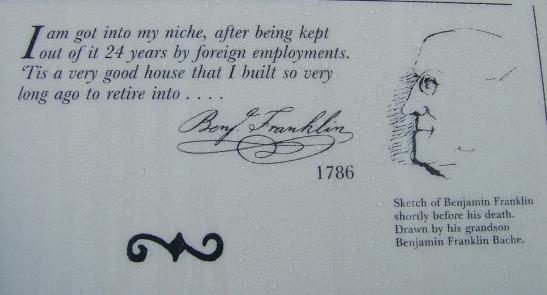 I am got into my niche, after being kept
out of it 24 years by foreign employments.
'Tis a very good house that I built so very
long ago to retire into . . . .
Benj. Franklin
1786
Sketch of Benjamin Franklin
shortly before his death.
Drawn by his grandson
Benjamin Franklin Bache.